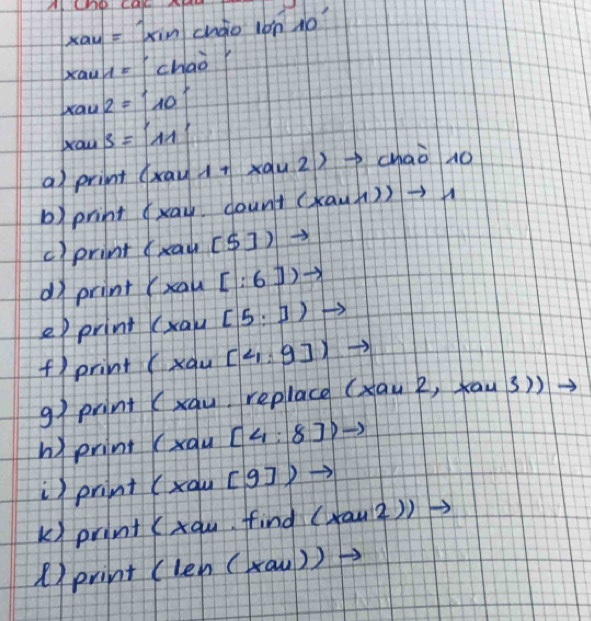 1 Cho các xâu
xau = 'xin chào lớp 10'
xau1 = 'chaò'
xau2 = '10'
xau3 = '11'
a) print (xau1 + xau2) → chaò 10
b) print (xau. count (xau1)) → 1
c) print (xau [5]) →
d) print (xau [:6]) →
e) print (xau [5:]) →
f) print (xau [4:9]) →
g) print (xau. replace (xau2, xau3)) →
h) print (xau [4:8]) →
i) print (xau [9]) →
k) print (xau. find (xau2)) →
l) print (len (xau)) →